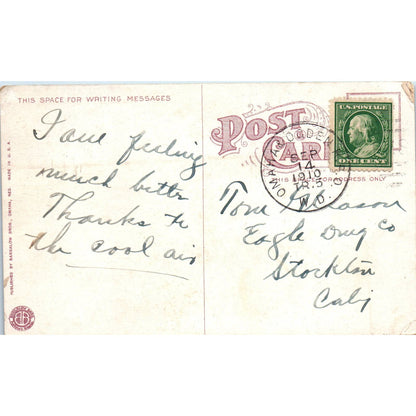 THIS SPACE FOR WRITING MESSAGES
I am feeling
much better
Thanks to
the cool air
PUBLISHED BY BARKALOW BROS., OMAHA, NEB. MADE IN U.S.A.
POST CARD
THIS SPACE FOR ADDRESS ONLY
U.S. POSTAGE
ONE CENT
OMAHA & OGDEN
SEP
14
1910
TR.5
W.D.
Tom
Eagle Drug Co
Stockton
Calif